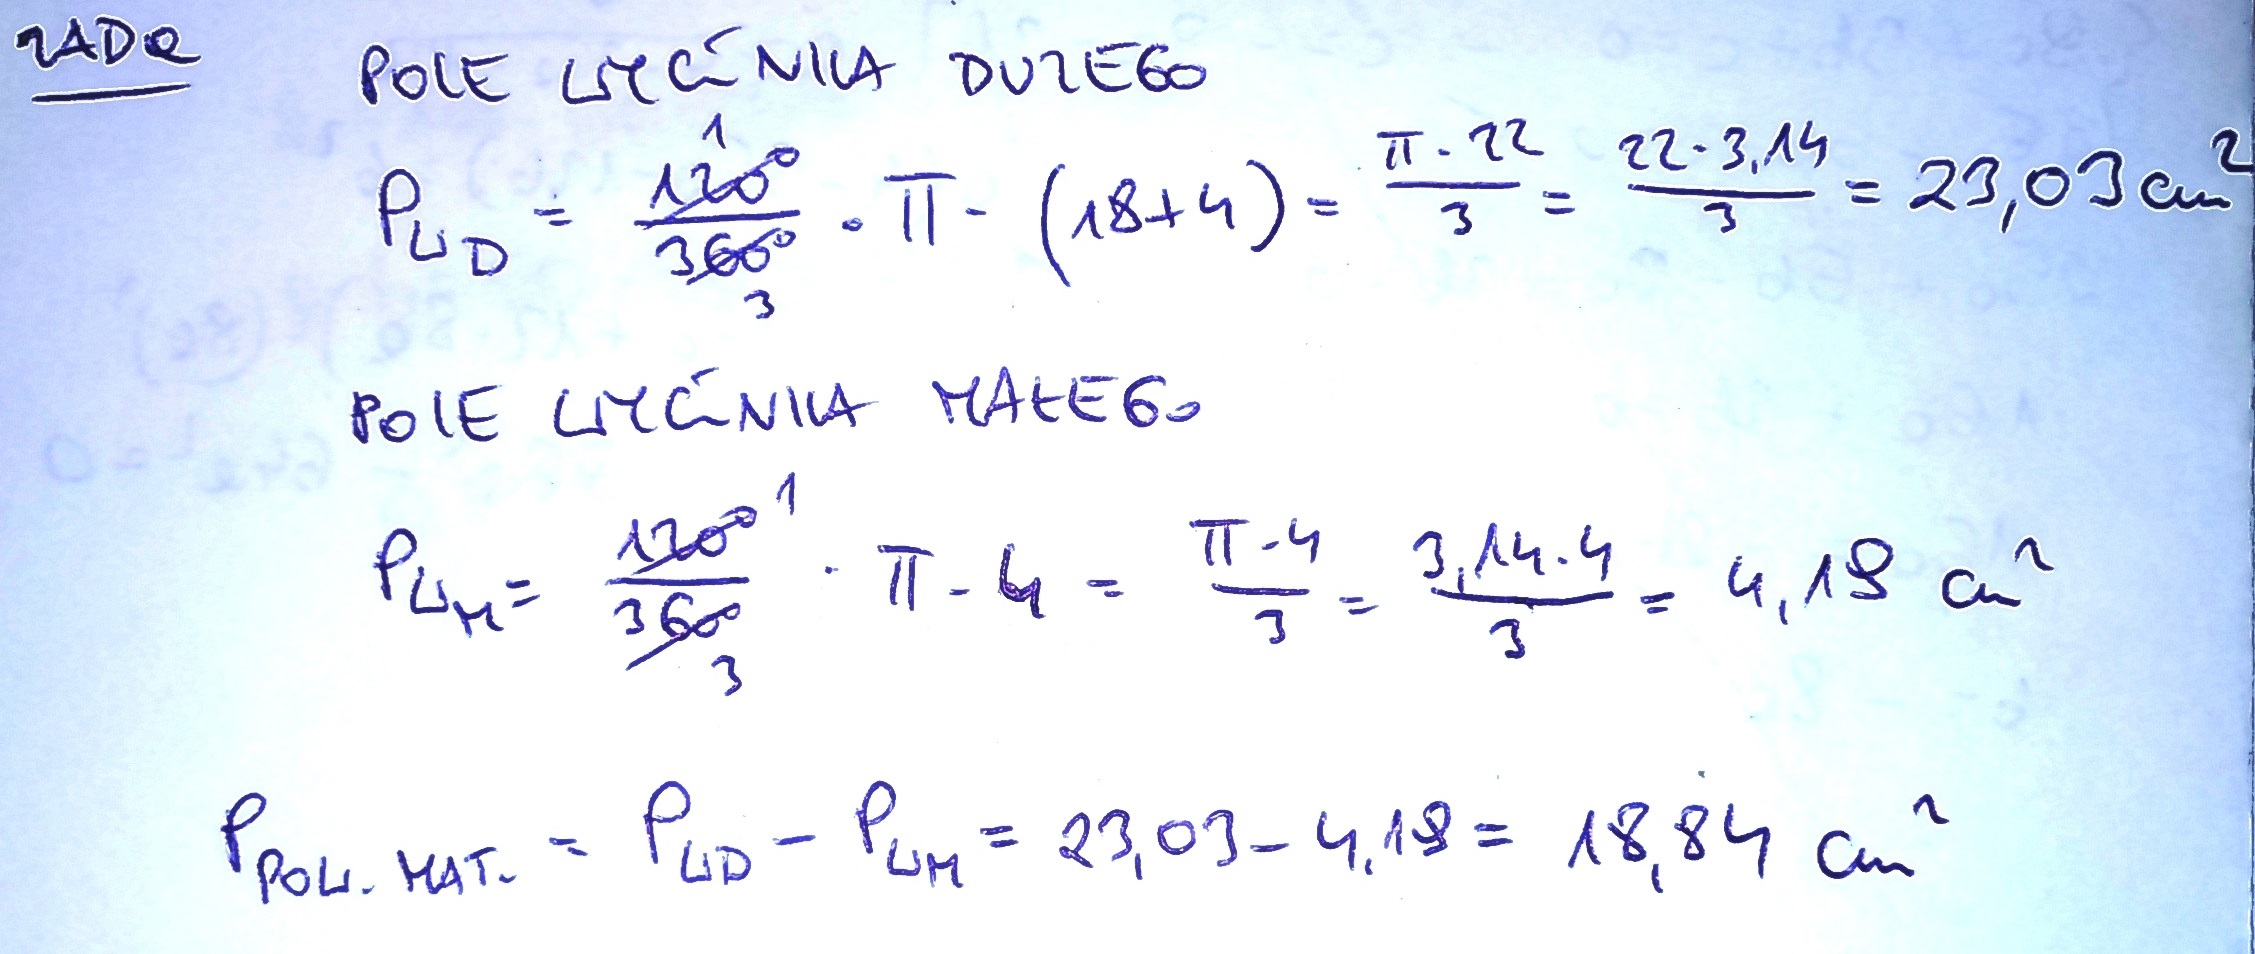 ZAD 2
POLE WYCINKA DUŻEGO
P_WD = 120°/360° · π · (18+4) = π·22/3 = 22·3,14/3 = 23,03 cm²
1
3
POLE WYCINKA MAŁEGO
P_WM = 120°/360° · π · 4 = π·4/3 = 3,14·4/3 = 4,19 cm²
1
3
P_POW. MAT. = P_WD - P_WM = 23,03 - 4,19 = 18,84 cm²